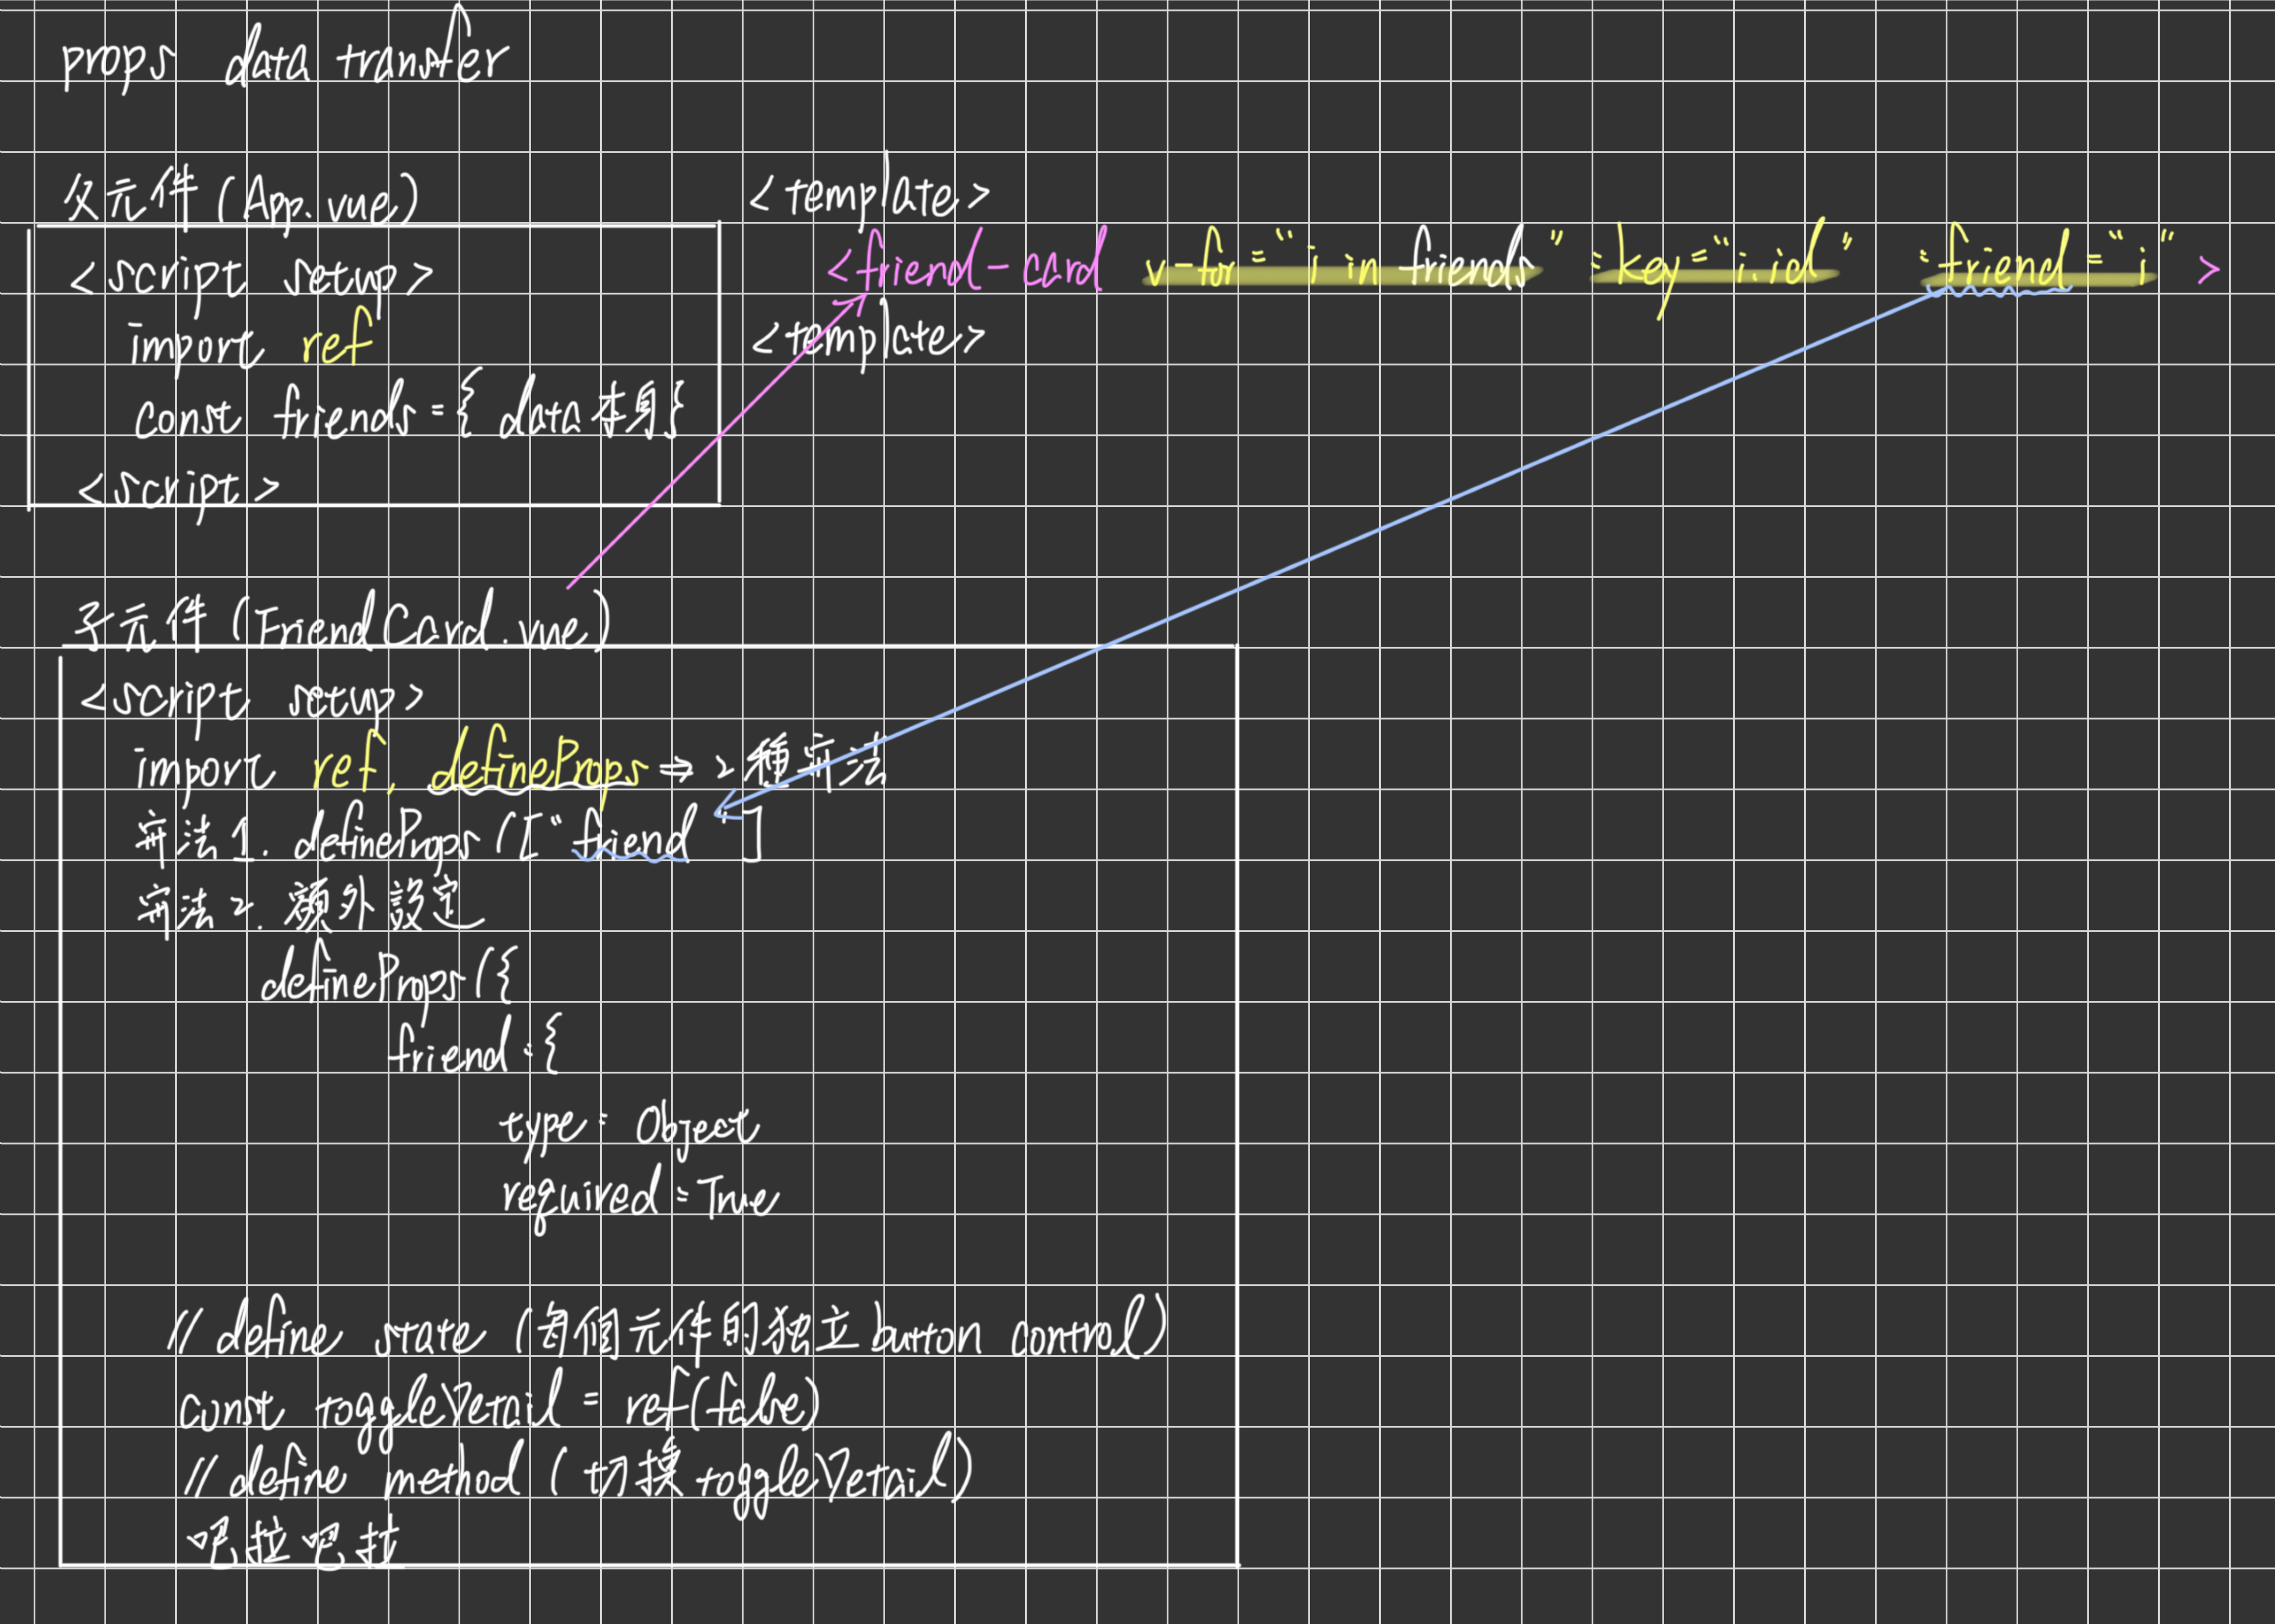 props data transfer
父元件 (App.vue)
<script setup>
import ref
const friends = { data 本身}
<script>
<template>
<friend-card v-for="i in friends" :key="i.id" :friend="i" >
<template>
子元件 (FriendCard.vue)
<script setup>
import ref, defineProps ⇒ 2種寫法
寫法1. defineProps (["friend"]
寫法2. 額外設定
defineProps ({
friend:{
type: Object
required: True
// define state (每個元件的独立 button control)
const toggleDetail = ref(false)
// define method (切換 toggleDetail)
吧拉吧拉